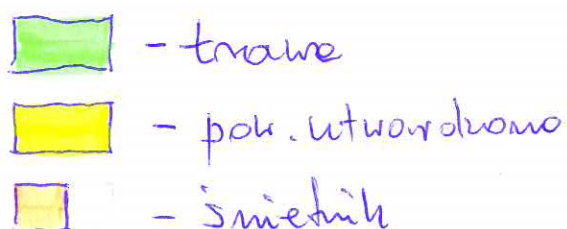 - trawa
- pow. utwardzona
- śmietnik